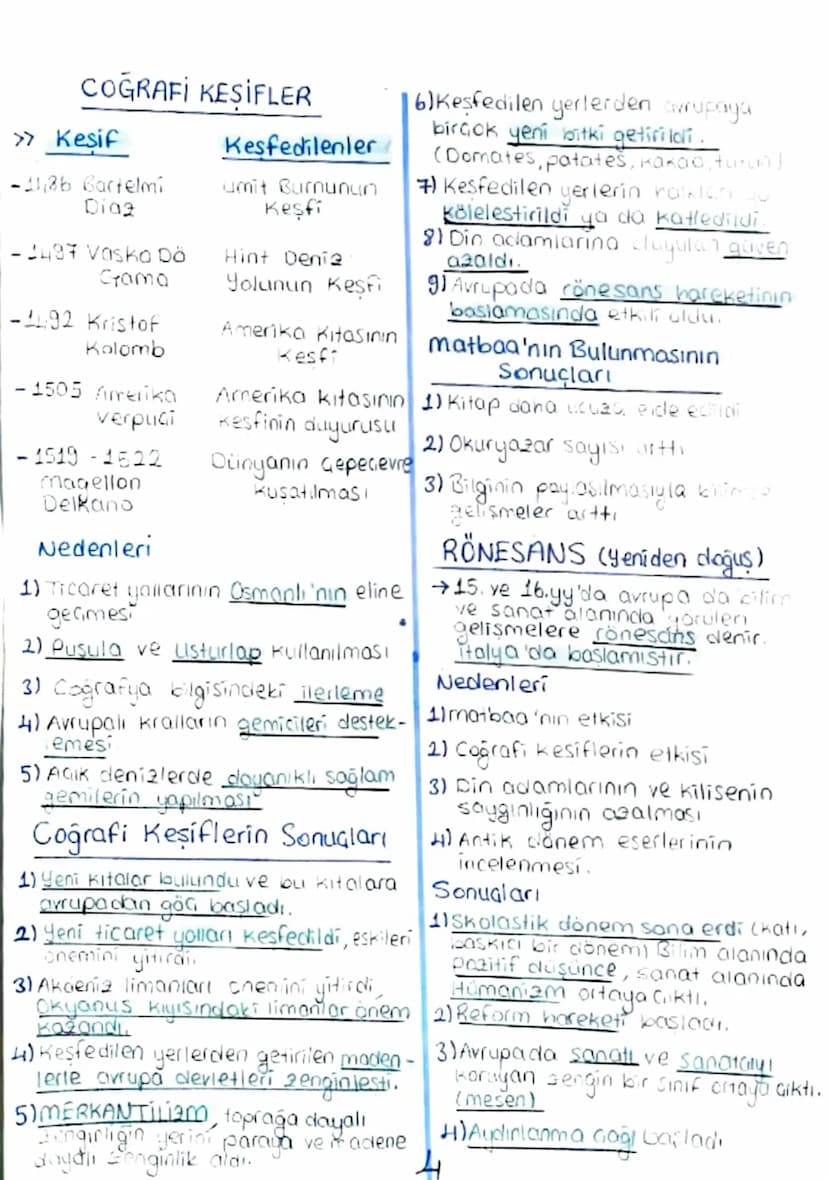 COĞRAFİ KEŞİFLER
>> Keşif Keşfedilenler
- 1486 Bartelmi Ümit Burnunun
Diaz Keşfi
- 1497 Vasko Dö Hint Deniz
Gama Yolunun Keşfi
- 1492 Kristof Amerika Kıtasının
Kolomb Keşfi
- 1505 Amerika kıtasının
Verpuci Kesfinin duyurusu
- 1519 - 1522 Dünyanın Çepeçevre
Magellon Kuşatılması
Delkano
Nedenleri
1) Ticaret yollarının Osmanlı'nın eline
geçmesi
2) Pusula ve usturlap kullanılması
3) Coğrafya bilgisindeki ilerleme
4) Avrupalı kralların gemicileri destek-
lemesi
5) Açık denizlerde dayanıklı sağlam
gemilerin yapılması
Coğrafi Keşiflerin Sonuçları
1) Yeni kıtalar bulundu ve bu kıtalara
avrupadan göç başladı.
2) Yeni ticaret yolları kesfedildi, eskileri
önemini yitirdi.
3) Akdeniz limanları önemini yitirdi,
Okyanus kıyısındaki limanlar önem
kazandı.
4) Keşfedilen yerlerden getirilen maden-
lerle avrupa devletleri zenginleşti.
5) MERKANTİLİZM, toprağa dayalı
zenginliğin yerini paraya ve madene
dayalı zenginlik aldı.
6) Keşfedilen yerlerden avrupaya
birçok yeni bitki getirildi.
(Domates, patates, kakao, tütün)
7) Kesfedilen yerlerin
kölelestirildi ya da katledildi.
8) Din adamlarına duyulan güven
azaldı.
9) Avrupada rönesans hareketinin
baslamasında etkili oldu.
matbaa'nın Bulunmasının
Sonuçları
1) Kitap daha ucuza elde edildi
2) Okuryazar sayısı arttı
3) Bilginin paylaşılmasıyla
gelişmeler arttı
RÖNESANS (Yeniden doğuş)
→ 15. ve 16.yy'da avrupa da bilim
ve sanat alanında görülen
gelişmelere rönesans denir.
italya'da başlamıstır.
Nedenleri
1) matbaa'nın etkisi
2) Coğrafi kesiflerin etkisi
3) Din adamlarının ve kilisenin
saygınlığının azalması
4) Antik dönem eserlerinin
incelenmesi.
Sonuçları
1) Skolastik dönem sona erdi (katı,
baskıcı bir dönem) Bilim alanında
pozitif düşünce, sanat alanında
Hümanizm ortaya çıktı.
2) Reform hareketi başladı.
3) Avrupada sanatı ve sanatçıyı
koruyan zengin bir sınıf ortaya çıktı.
(mesen)
4) Aydınlanma çağı başladı
4